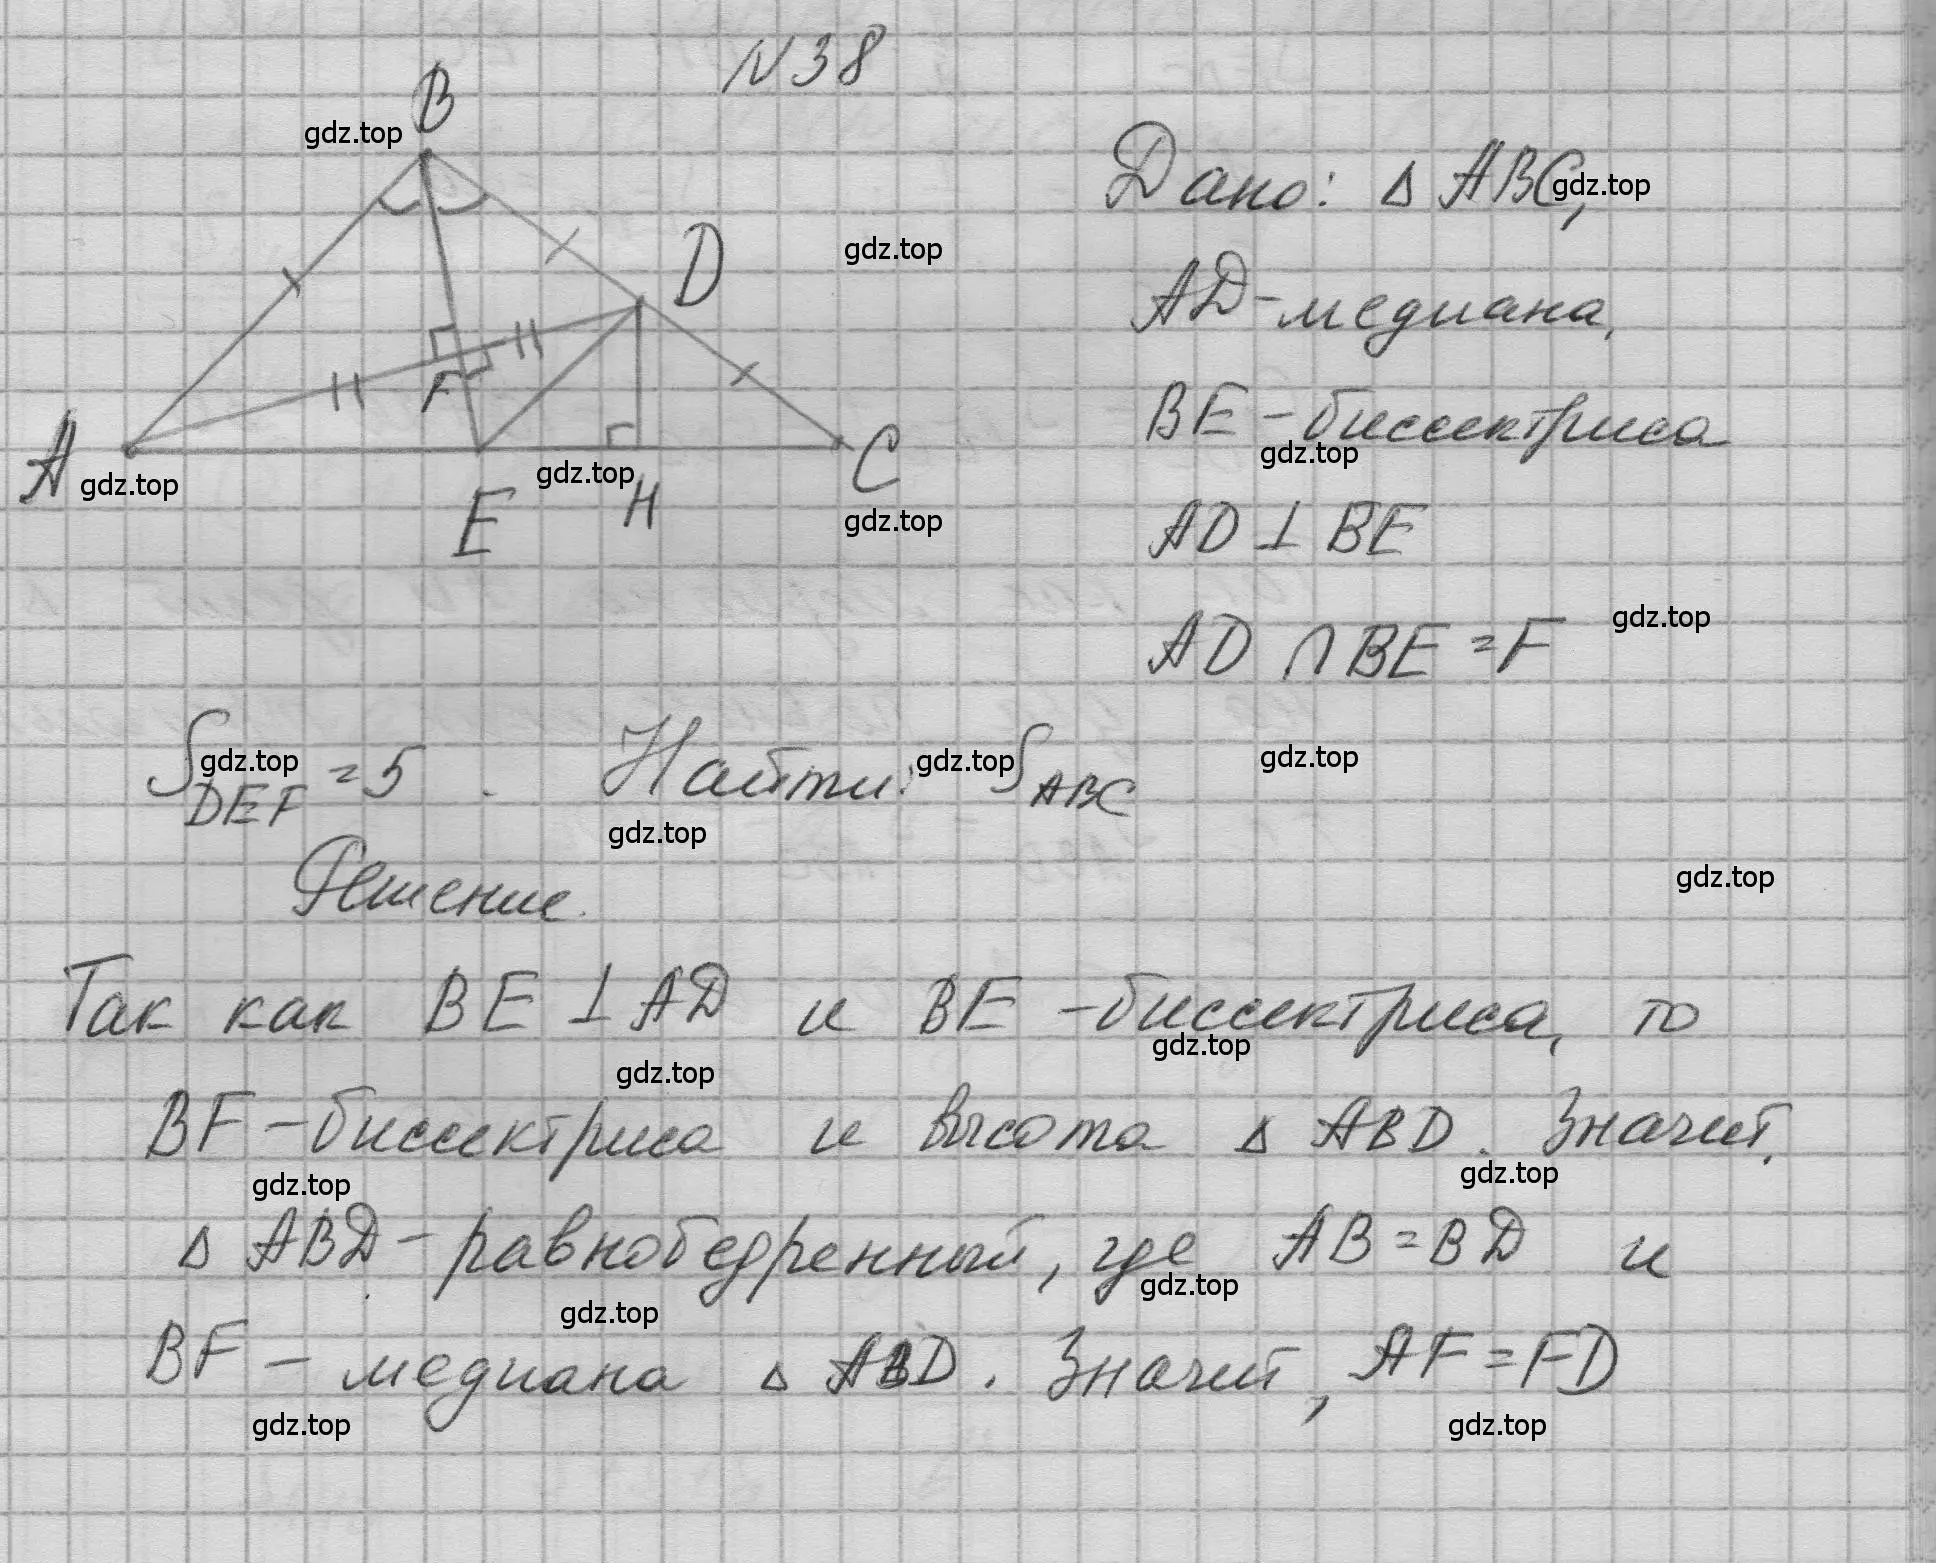 N38
B
gdz.top
Дано: Δ ABC,
gdz.top
D
gdz.top
AD - медиана,
F
BE - биссектриса
gdz.top
A
gdz.top
E
gdz.top
H
C
gdz.top
AD ⊥ BE
AD ∩ BE = F
gdz.top
S DEF = 5 . Найти: S ABC
gdz.top
gdz.top
gdz.top
gdz.top
Решение.
gdz.top
Так как BE ⊥ AD и BE - биссектриса, то
gdz.top
gdz.top
BF - биссектриса и высота Δ ABD. Значит,
gdz.top
gdz.top
Δ ABD - равнобедренный, где AB = BD и
gdz.top
gdz.top
BF - медиана Δ ABD. Значит, AF = FD
gdz.top
gdz.top